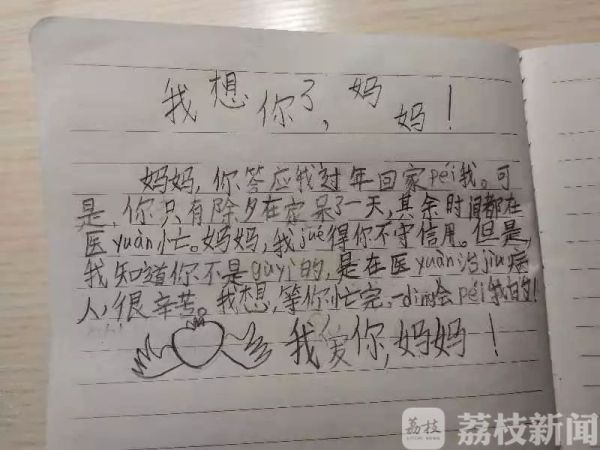 我想你了,妈妈!
妈妈,你答应我过年回家péi我。可
是,你只有除夕在家呆了一天,其余时间都在
医yuàn忙。妈妈,我jué得你不守信用。但是,
我知道你不是gùyì的,是在医yuàn治jiù病
人,很辛苦。我想,等你忙完,一dìng会péi我的!
我爱你,妈妈!
荔枝
荔枝新闻